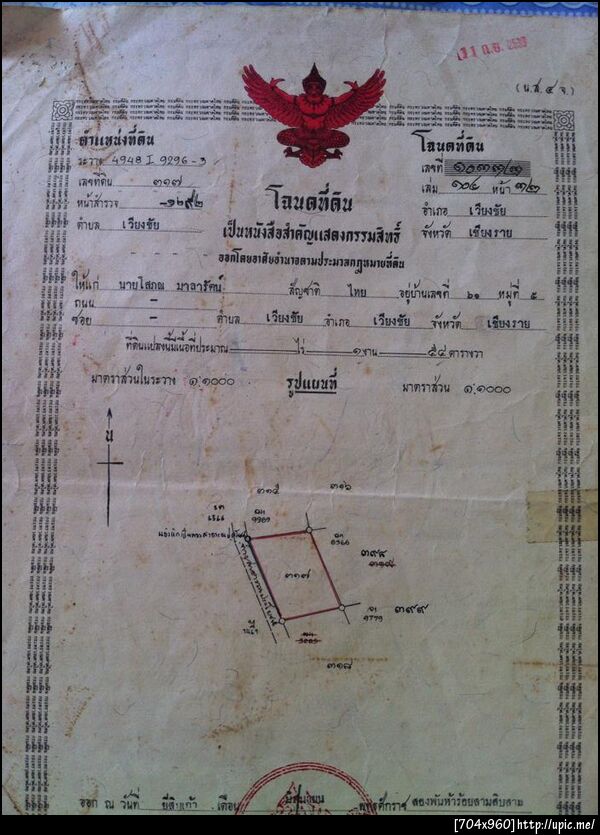 (น.ส. ๔ จ.)
ตำแหน่งที่ดิน
ระวาง 4948 I 9296-3
เลขที่ดิน ๓๑๗
หน้าสำรวจ ๑๒๙๒
ตำบล เวียงชัย
โฉนดที่ดิน
เลขที่
เล่ม ๑๐๔ หน้า ๓๒
อำเภอ เวียงชัย
จังหวัด เชียงราย
โฉนดที่ดิน
เป็นหนังสือสำคัญแสดงกรรมสิทธิ์
ออกโดยอาศัยอำนาจตามประมวลกฎหมายที่ดิน
ให้แก่ นายโสภณ มาลารัตน์ สัญชาติ ไทย อยู่บ้านเลขที่ ๖๑ หมู่ที่ ๕
ถนน –
ซอย – ตำบล เวียงชัย อำเภอ เวียงชัย จังหวัด เชียงราย
ที่ดินแปลงนี้มีเนื้อที่ประมาณ ไร่ ๑ งาน ๕๔ ตารางวา
มาตราส่วนในระวาง ๑:๑๐๐๐ รูปแผนที่ มาตราส่วน ๑:๑๐๐๐
น
๓๑๕ ๓๑๖
๓๑๗
๓๙๘
๓๙๙
๓๑๘
ออก ณ วันที่ ยี่สิบเก้า เดือน มิถุนายน พุทธศักราช สองพันห้าร้อยสามสิบสาม
[704x960]http://upic.me/